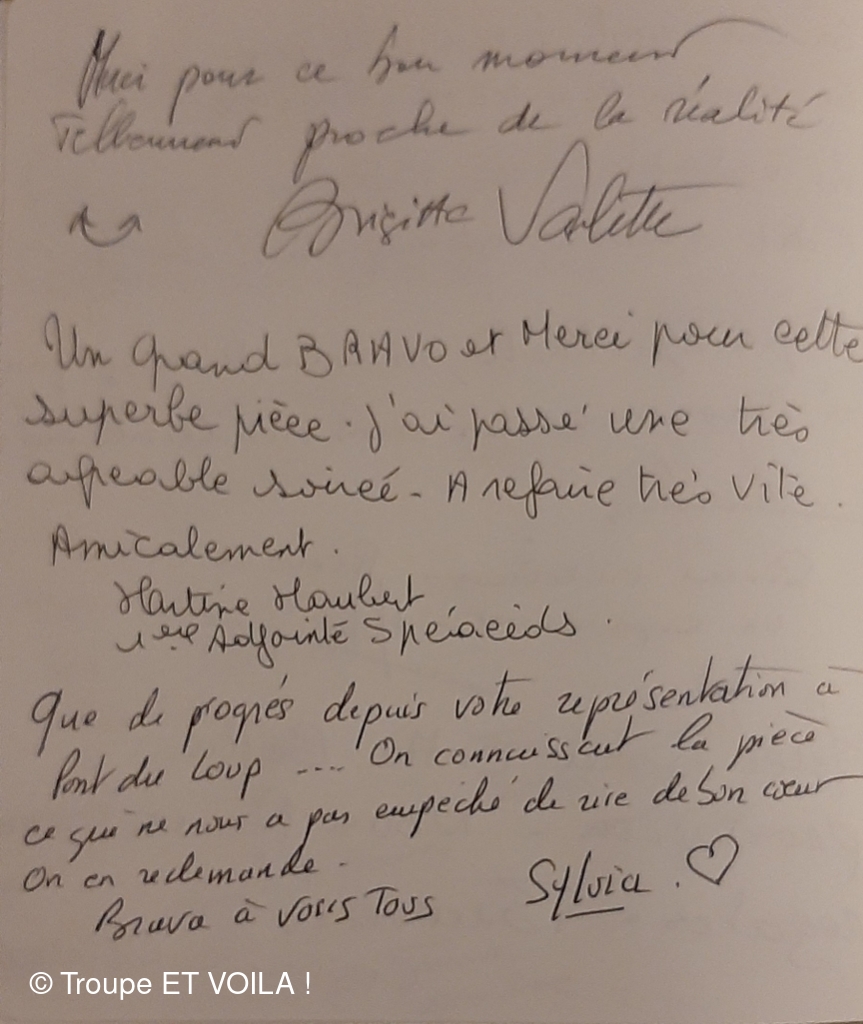 Merci pour ce bon moment
Tellement proche de la réalité
Brigitte Valette
Un grand BRAVO et Merci pour cette
superbe pièce. J'ai passé une très
agreable soireé - A refaire très vite.
Amicalement.
Martine Maubert
1ère Adjointe
Que de progrés depuis votre représentation à
Pont du Loup .... On connaissait la pièce
ce qui ne nous a pas empeché de rire de bon cœur
On en redemande -
Bravo à vous Tous Sylvia. ♡
© Troupe ET VOILA !